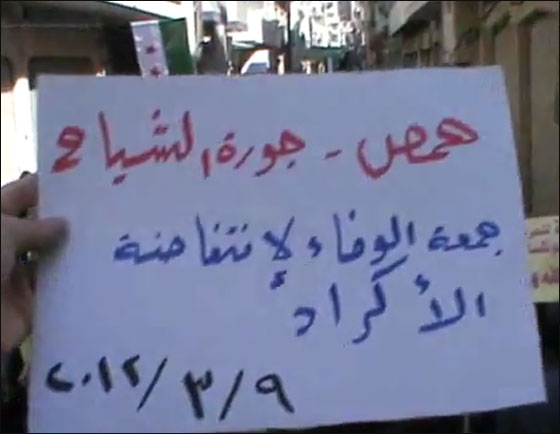 حمص - جورة الشياح
جمعة الوفاء لإنتفاضة
الأكراد
٢٠١٢/٣/٩